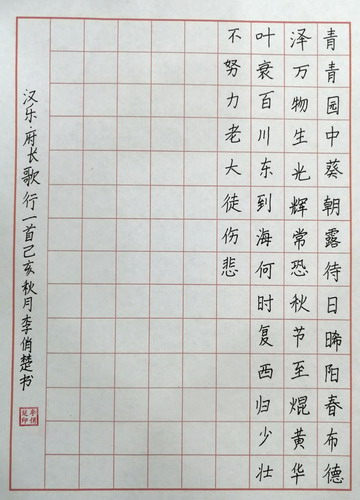 青青园中葵朝露待日晞阳春布德
泽万物生光辉常恐秋节至焜黄华
叶衰百川东到海何时复西归少壮
不努力老大徒伤悲
汉乐府长歌行一首己亥秋月李俏楚书